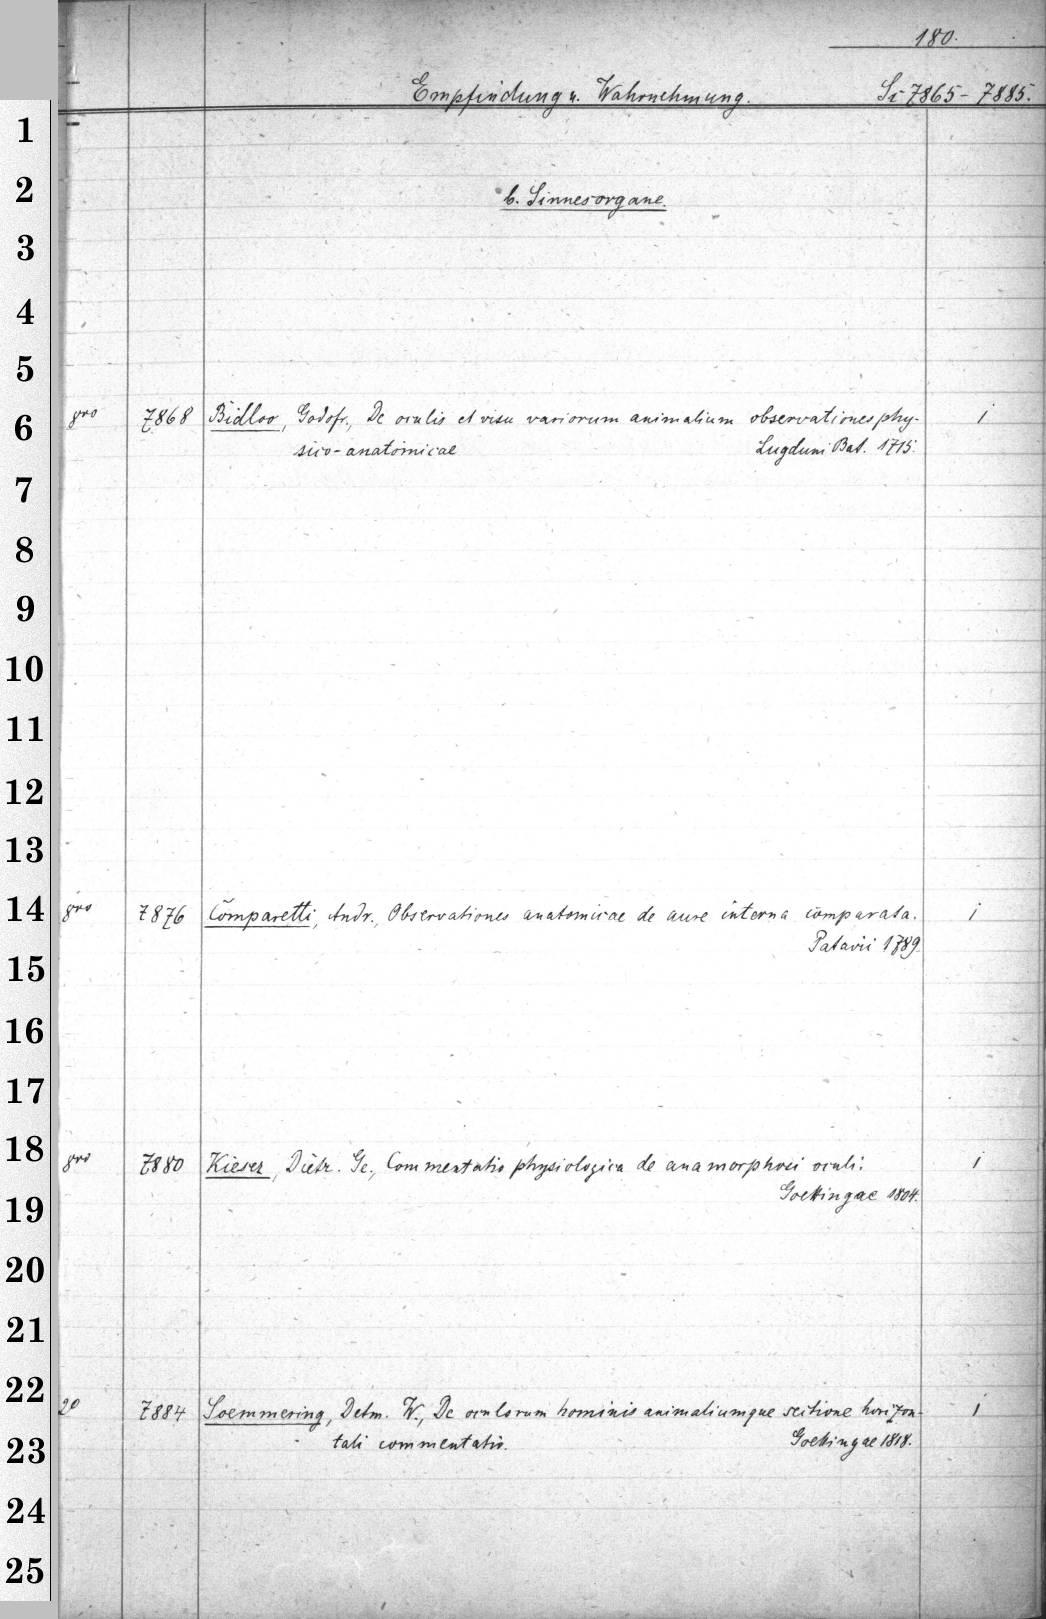 180.
Empfindung u. Wahrnehmung. Si 7865 - 7885.
b. Sinnesorgane.
1
2
3
4
5
6
7
8
9
10
11
12
13
14
15
16
17
18
19
20
21
22
23
24
25
8vo 7868 Bidloo, Godofr., De oculis et visu variorum animalium observationes phy- 1
sico-anatomicae Lugduni Bat. 1715.
8vo 7876 Comparetti, Andr., Observationes anatomicae de aure interna comparata. 1
Patavii 1789.
8vo 7880 Kieser, Dietr. Ge., Commentatio physiologica de anamorphosi oculi. 1
Goettingae 1804.
2o 7884 Soemmering, Detm. W., De oculorum hominis animaliumque sectione horizon- 1
tali commentatio. Goettingae 1818.